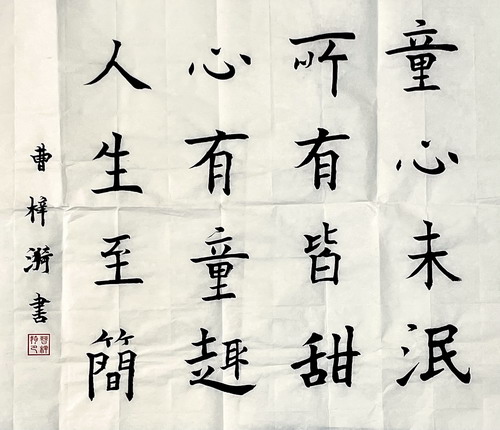 童心未泯
所有皆甜
心有童趣
人生至簡
曹梓漪書